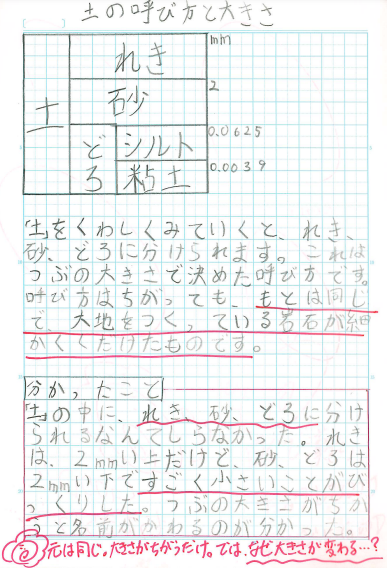 土の呼び方と大きさ
mm
れき
2
砂
土
0.0625
どろ
シルト
0.0039
粘土
「土」をくわしくみていくと、れき、
砂、どろに分けられます。これは
つぶの大きさで決めた呼び方です。
呼び方はちがっても、もとは同じ
で、大地をつくっている岩石が細
かくくだけたものです。
分かったこと
「土」の中に、れき、砂、どろに分け
られるなんてしらなかった。れき
は、2mmい上だけど、砂、どろは
2mmい下ですごく小さいことがび
っくりした。つぶの大きさがちが
うと名前がかわるのが分かった。
元は同じ。大きさがちがうだけ。では、なぜ大きさが変わる…?